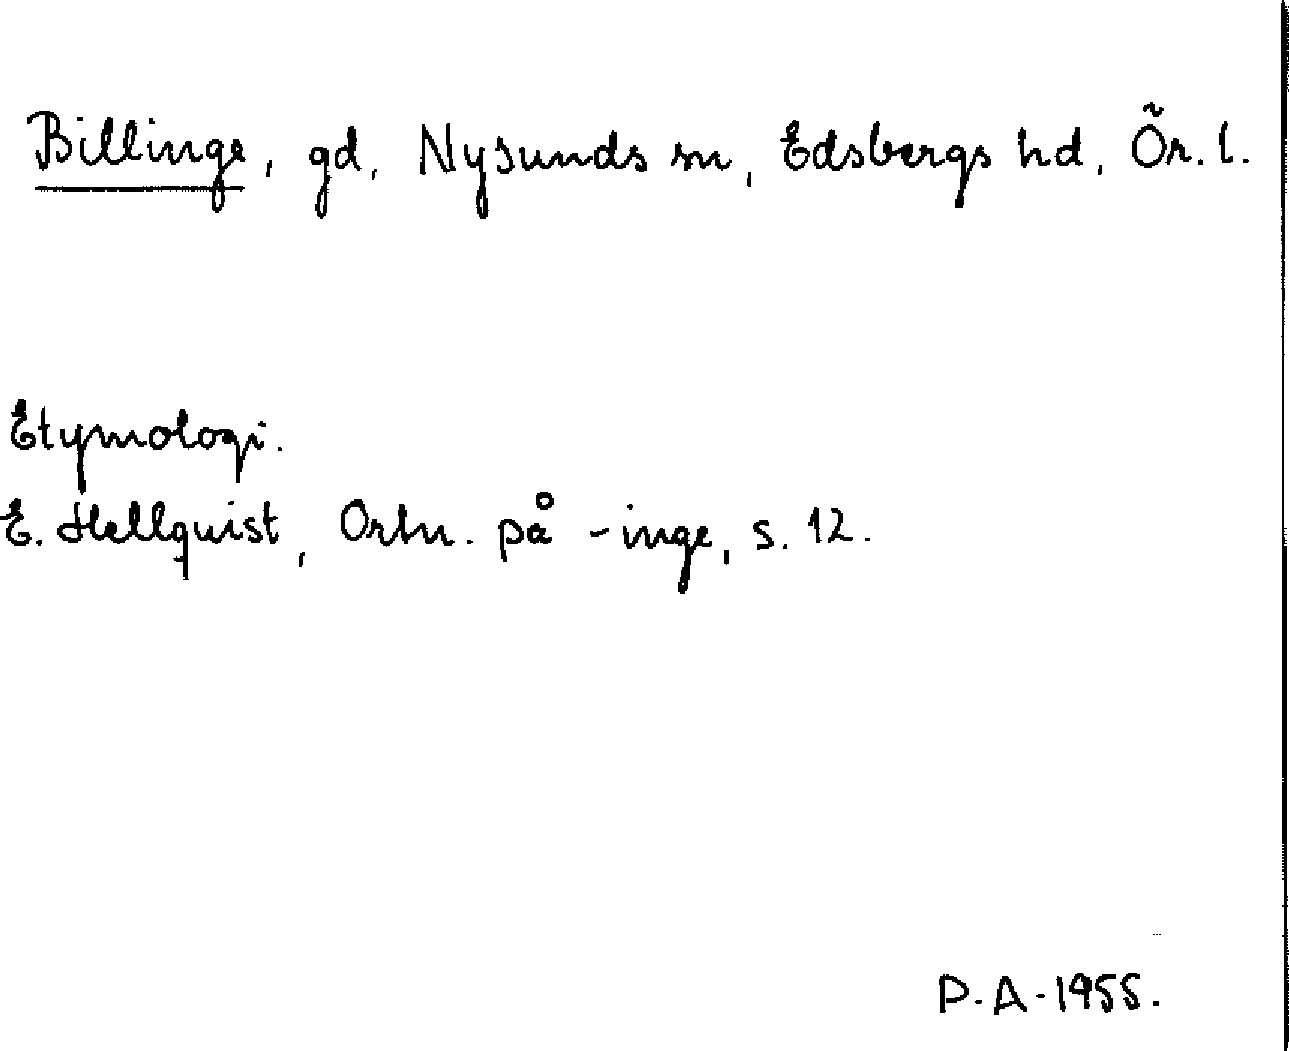 Billinge, gd, Nysunds sn, Edsbergs hd, Ör. l.
Etymologi.
E. Hellquist, Ortn. på -inge, s. 12.
P.A. 1955.